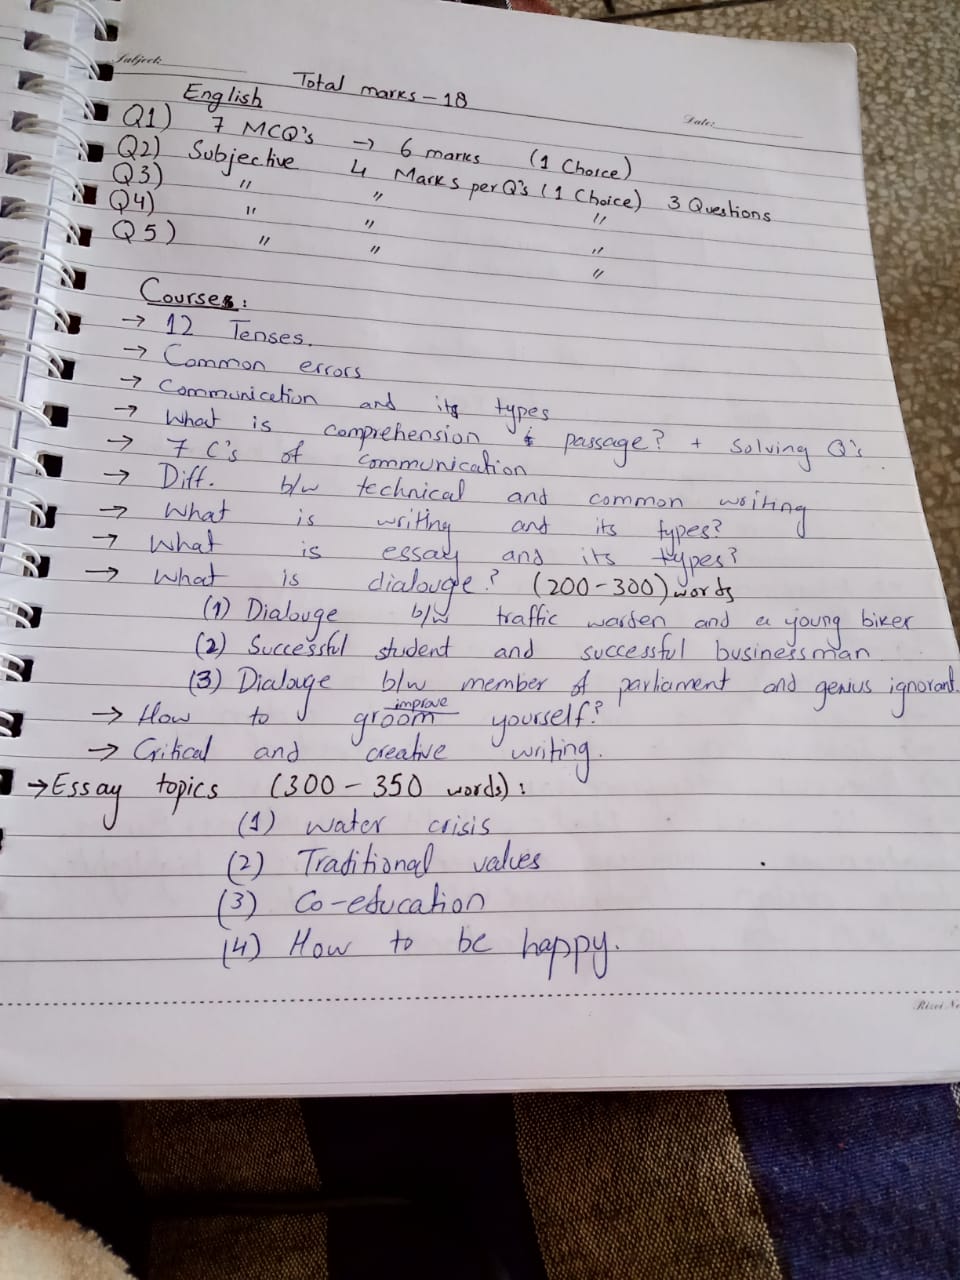 Subject:
Total marks - 18
Date:
English
Q1) 7 MCQ's → 6 marks (1 Choice)
Q2) Subjective 4 Marks per Q's (1 Choice) 3 Questions
Q3) " " "
Q4) " " "
Q5) " " "
Courses:
→ 12 Tenses.
→ Common errors
→ Communication and its types
→ What is comprehension & passage? + Solving Q's
→ 7 C's of communication
→ Diff. b/w technical and common writing
→ What is writing and its types?
→ What is essay and its types?
→ What is dialouge? (200-300) words
(1) Dialouge b/w traffic warden and a young biker
(2) Successful student and successful businessman
(3) Dialouge b/w member of parliament and genius ignorant.
improve
→ How to groom yourself?
→ Critical and creative writing.
→ Essay topics (300-350 words):
(1) water crisis
(2) Traditional values
(3) Co-education
(4) How to be happy.